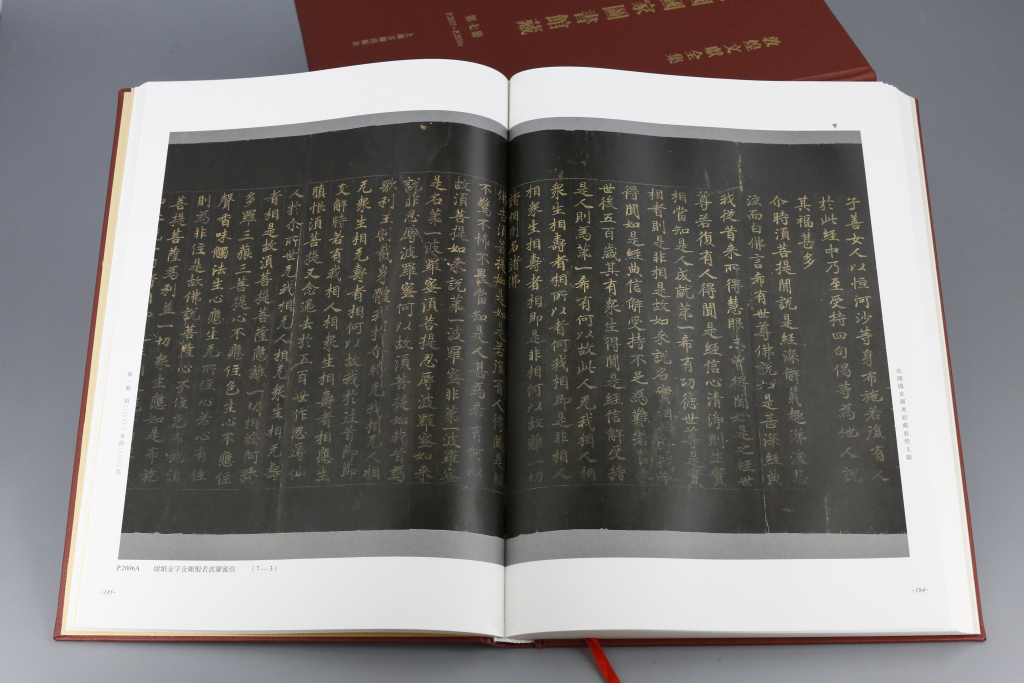 國國家圖書館藏
敦煌文獻全集
第七冊
上海古籍出版社
子善女人以恒河沙等身布施若復有人
於此經中乃至受持四句偈等為他人說
其福甚多
介時須菩提聞說是經深解義趣涕淚悲
泣而白佛言希有世尊佛說如是甚深經典
我從昔來所得慧眼未曾得聞如是之經世
尊若復有人得聞是經信心清淨則生實
相當知是人成就第一希有功德世尊是實
相者則是非相是故如來說名實相
得聞如是經典信解受持不足為難
世後五百歲其有眾生得聞是經信解受持
是人則為苐一希有何以故此人无我相人相
眾生相壽者相所以者何我相即是非相人
相眾生相壽者相即是非相何以故離一切
諸相則名諸佛
佛告須菩提如是如是若復有人得聞是經
不驚不怖不畏當知是人甚為希有
故須菩提如來說苐一波羅蜜非苐一波羅蜜
是名苐一波羅蜜須菩提忍辱波羅蜜如來
說非忍辱波羅蜜何以故須菩提如我昔為
歌利王割截身體我於尒時无我相无人相
无眾生相无壽者相何以故我於往昔節節
支解時若有我相人相眾生相壽者相應生
瞋恨須菩提又念過去於五百世作忍辱仙
人於尒所世无我相无人相无眾生相无壽
者相是故須菩提菩薩應離一切相發阿耨
多羅三藐三菩提心不應住色生心不應住
聲香味觸法生心應生无所住心若心有住
則為非住是故佛說菩薩心不住色布施須
菩提菩薩為利益一切眾生應如是布施
法國國家圖書館藏敦煌文獻
P.2006A 紺紙金字金剛般若波羅蜜經 （7—3）
·185·
·184·